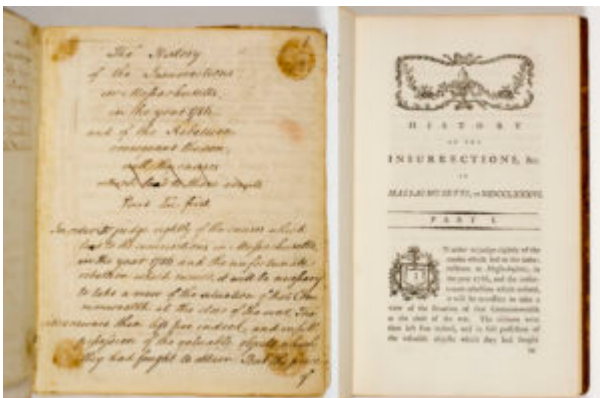 The History
of the Insurrections
in Massachusetts,
in the year 1786
and of the Rebellion
consequent thereon;
Part the first
In order to judge rightly of the causes which
led to the insurrections in Massachusetts,
in the year 1786 and the unfortunate
rebellion which ensued, it will be necessary
to take a view of the situation of that Com
monwealth at the close of the war. The
were then left free indeed, and in full
possession of the valuable objects which
they had fought to obtain. But the
HISTORY
OF THE
INSURRECTIONS, &c.
IN
MASSACHUSETTS, in MDCCLXXXVI.
PART I.
IN order to judge rightly of the
causes which led to the insur-
rections in Massachusetts, in
the year 1786, and the unfor-
tunate rebellion which ensued,
it will be necessary to take a
view of the situation of that Commonwealth
at the close of the war. The citizens were
then left free indeed, and in full possession of
the valuable objects which they had fought